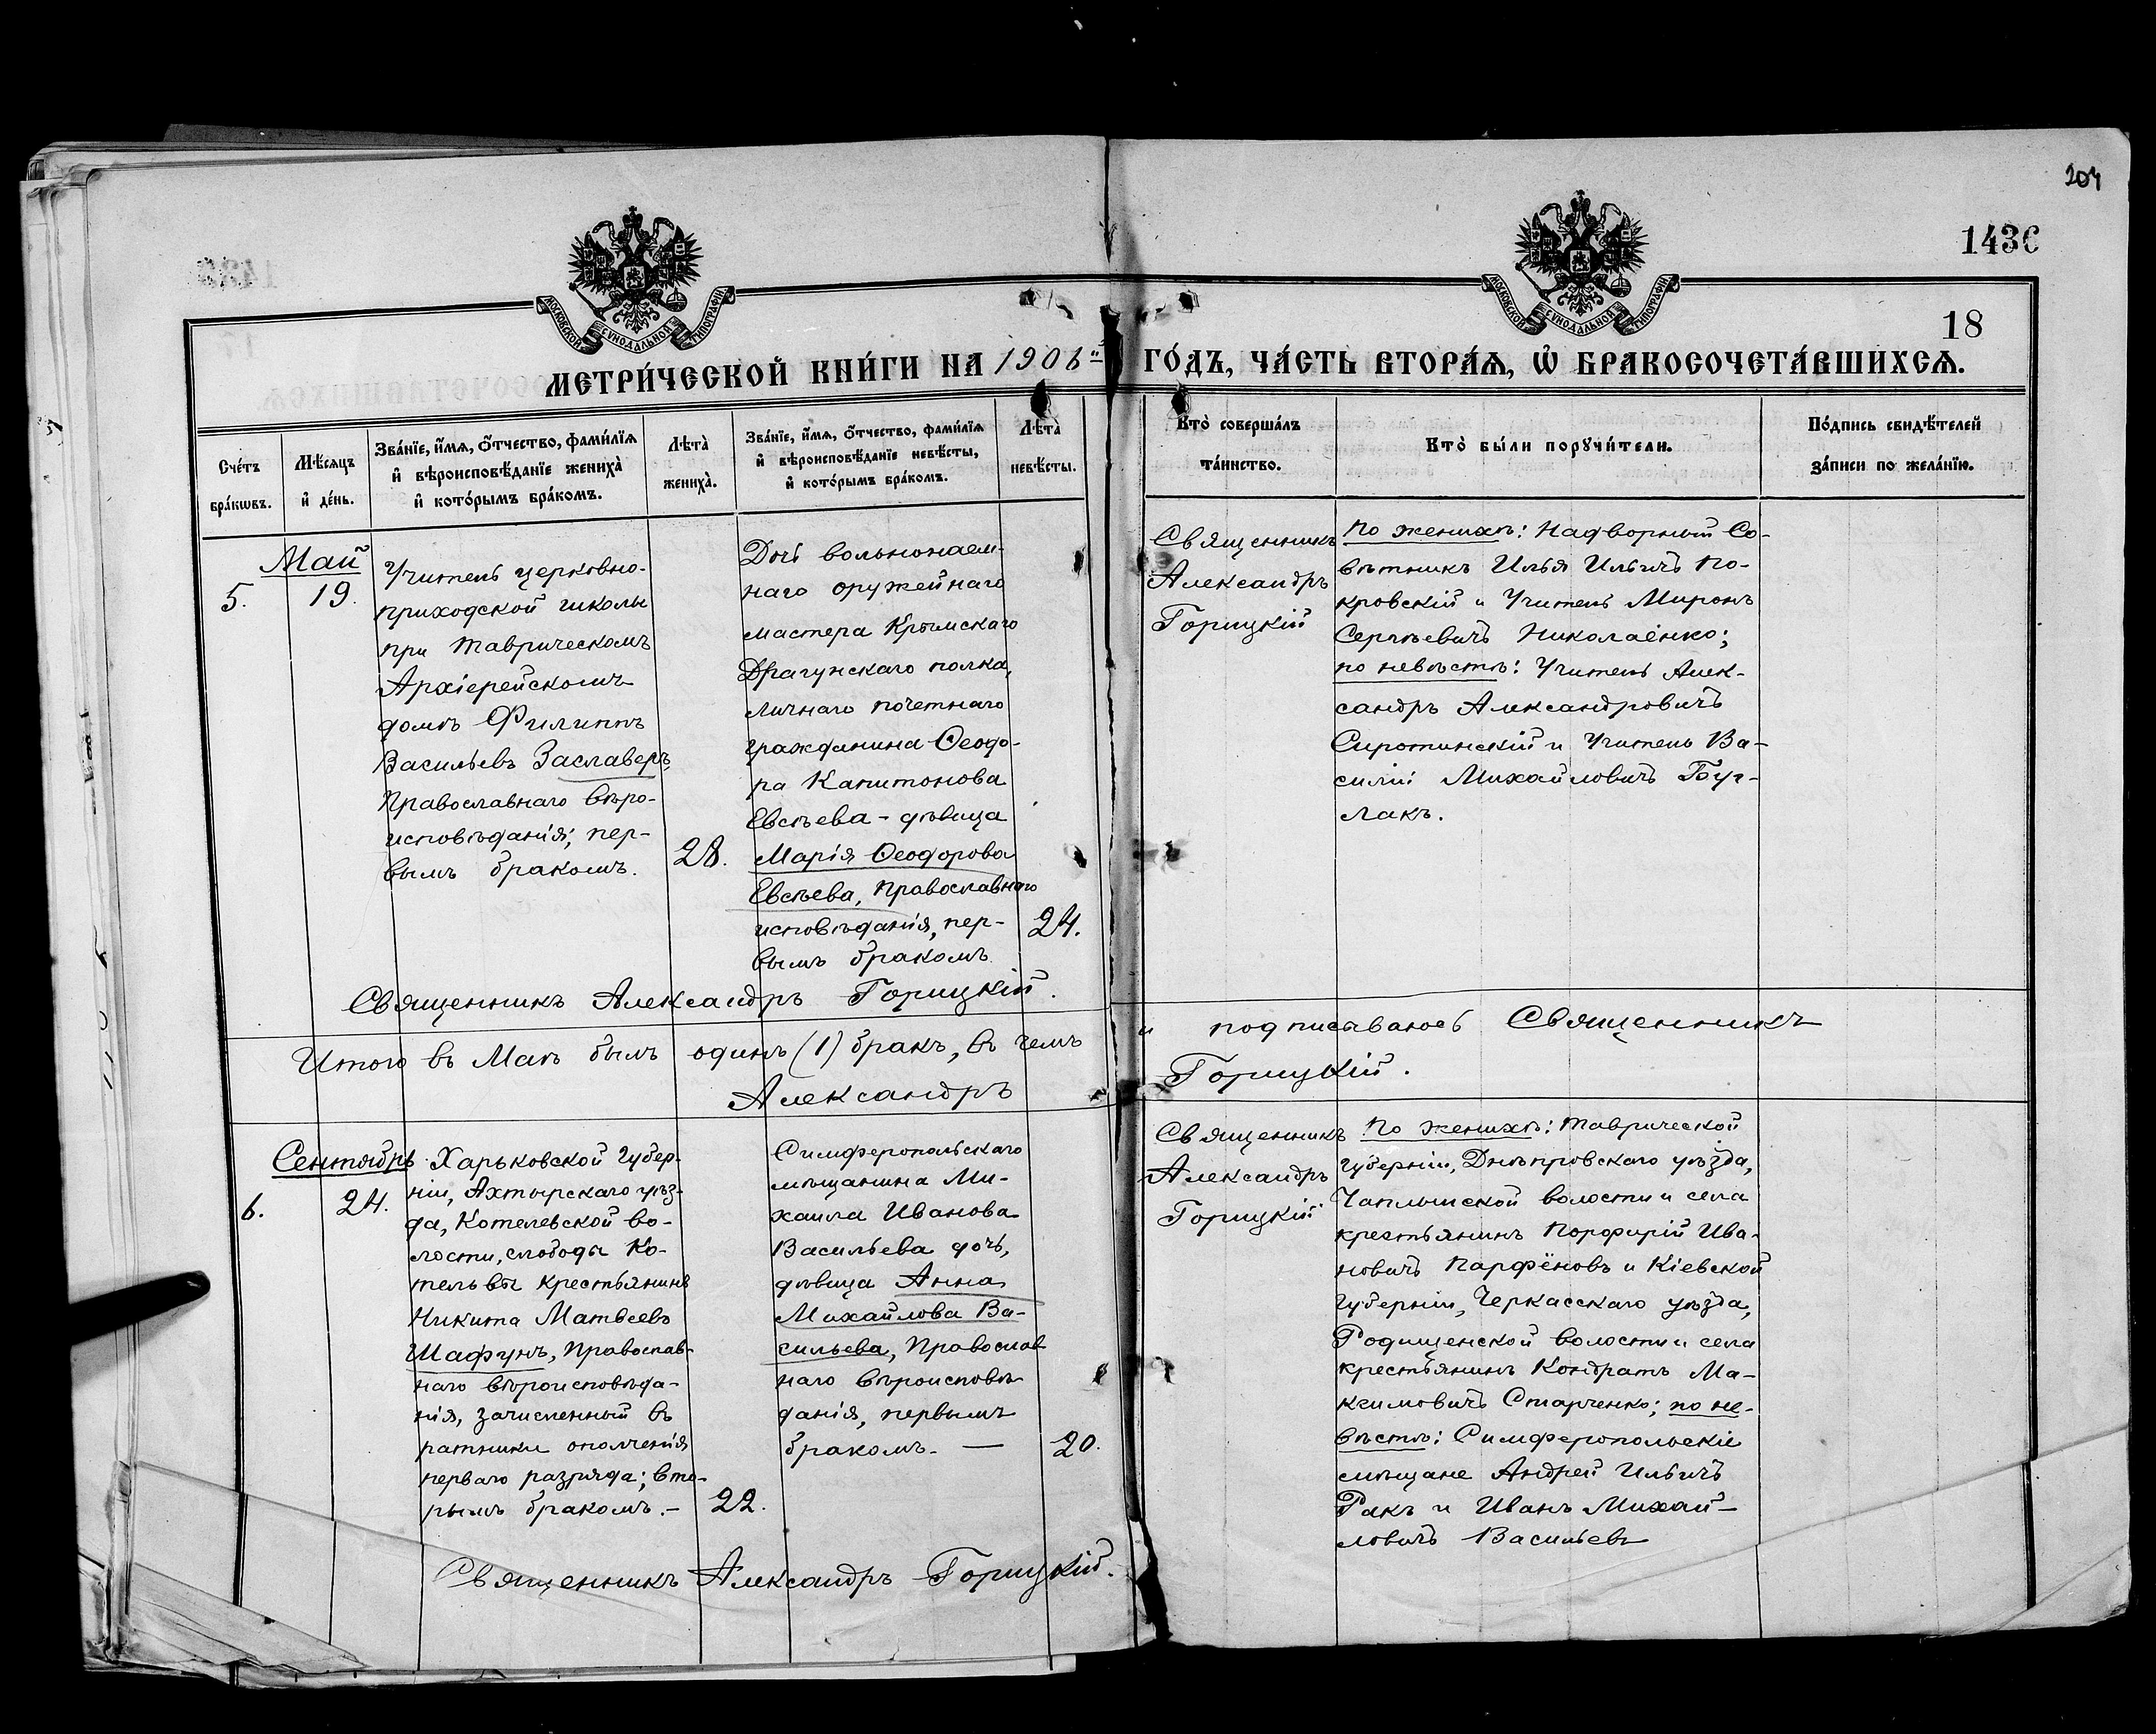 204
1436
18
МОСКОВСКОЙ СУНОДАЛЬНОЙ ТИПОГРАФІИ
МОСКОВСКОЙ СУНОДАЛЬНОЙ ТИПОГРАФІИ
МЕТРИ́ЧЕСКОЙ КНИ́ГИ НА 1906й ГО́ДЪ, ЧА́СТЬ ВТОРА́Ѧ, Ѡ҆ БРАКОСОЧЕТА́ВШИХСѦ.
Сче́тъ бра́кѡвъ.
Мѣ́сѧцъ и҆ де́нь.
Зва́нїе, и҆́мѧ, ѻ҆́тчество, фами́лїѧ
и҆ вѣроисповѣ́данїе жениха̀
и҆ кото́рымъ бра́комъ.
Лѣ́та̀ жениха̀.
Зва́нїе, и҆́мѧ, ѻ҆́тчество, фами́лїѧ
и҆ вѣроисповѣ́данїе невѣ́сты,
и҆ кото́рымъ бра́комъ.
Лѣ́та̀ невѣ́сты.
Кто̀ соверша́лъ та́инство.
Кто̀ бы́ли порꙋчи́тели.
По́дпись свидѣ́телей
за́писи по жела́нїю.
Май
5.
19.
Учитель церковно-
приходской школы
при Таврическомъ
Архіерейскомъ
домѣ Филиппъ
Васильевъ Заславеръ,
Православнаго вѣро-
исповѣданія; пер-
вымъ бракомъ.
28.
Дочь вольнонаем-
наго оружейнаго
мастера Крымскаго
Драгунскаго полка,
личнаго почетнаго
гражданина Ѳеодо-
ра Капитонова
Евсѣева - дѣвица
Марія Ѳеодорова
Евсѣева, Православнаго
исповѣданія, пер-
вымъ бракомъ
24.
Священникъ
Александръ
Горицкій
По женихѣ: Надворный Со-
вѣтникъ Илья Ильичъ По-
кровскій и Учитель Миронъ
Сергѣевичъ Николаёнко;
по невѣстѣ: Учитель Алек-
сандръ Александровичъ
Сиротинскій и Учитель Ва-
силій Михайловичъ Буг-
лакъ.
Священникъ Александръ Горицкій.
Итого въ Маѣ былъ одинъ (1) бракъ, въ чемъ и подписываюсь Священникъ
Александръ Горицкій.
Сентябрь
6.
24.
Харьковской Губер-
ніи, Ахтырскаго уѣз-
да, Котелевской во-
лости, слободы Ко-
тельвы крестьянинъ
Никита Матвеевъ
Шафунъ, Православ-
наго вѣроисповѣда-
нія, зачисленный въ
ратники ополченія
перваго разряда; вто-
рымъ бракомъ. -
22.
Симферопольскаго
мѣщанина Ми-
хаила Иванова
Васильева дочь,
дѣвица Анна
Михайлова Ва-
сильева, Православ
наго вѣроисповѣ-
данія, первымъ
бракомъ. —
20.
Священникъ
Александръ
Горицкій
По женихѣ: Таврической
Губерніи, Днѣпровскаго уѣзда,
Чаплынской волости и села
крестьянинъ Порфирій Ива-
новичъ Парфёновъ и Кіевской
Губерніи, Черкасскаго уѣзда,
Родищенской волости и села
крестьянинъ Кондратъ Ма-
ксимовичъ Старченко; по не-
вѣстѣ: Симферопольскіе
мѣщане Андрей Ильичъ
Ракъ и Иванъ Михай-
ловичъ Васильевъ
Священникъ Александръ Горицкій.